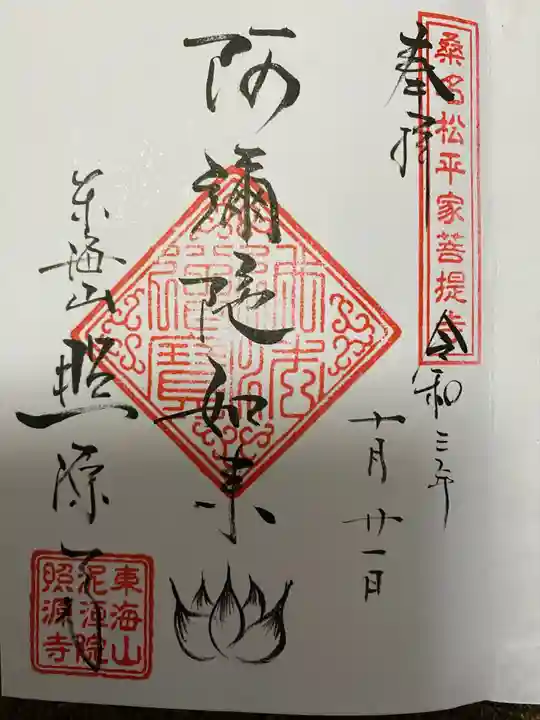 桑名松平家菩提寺
奉拝
令和三年
十月廿一日
阿彌陀如来
佛法僧寶
東海山
照源寺
東海山
泥洹院
照源寺